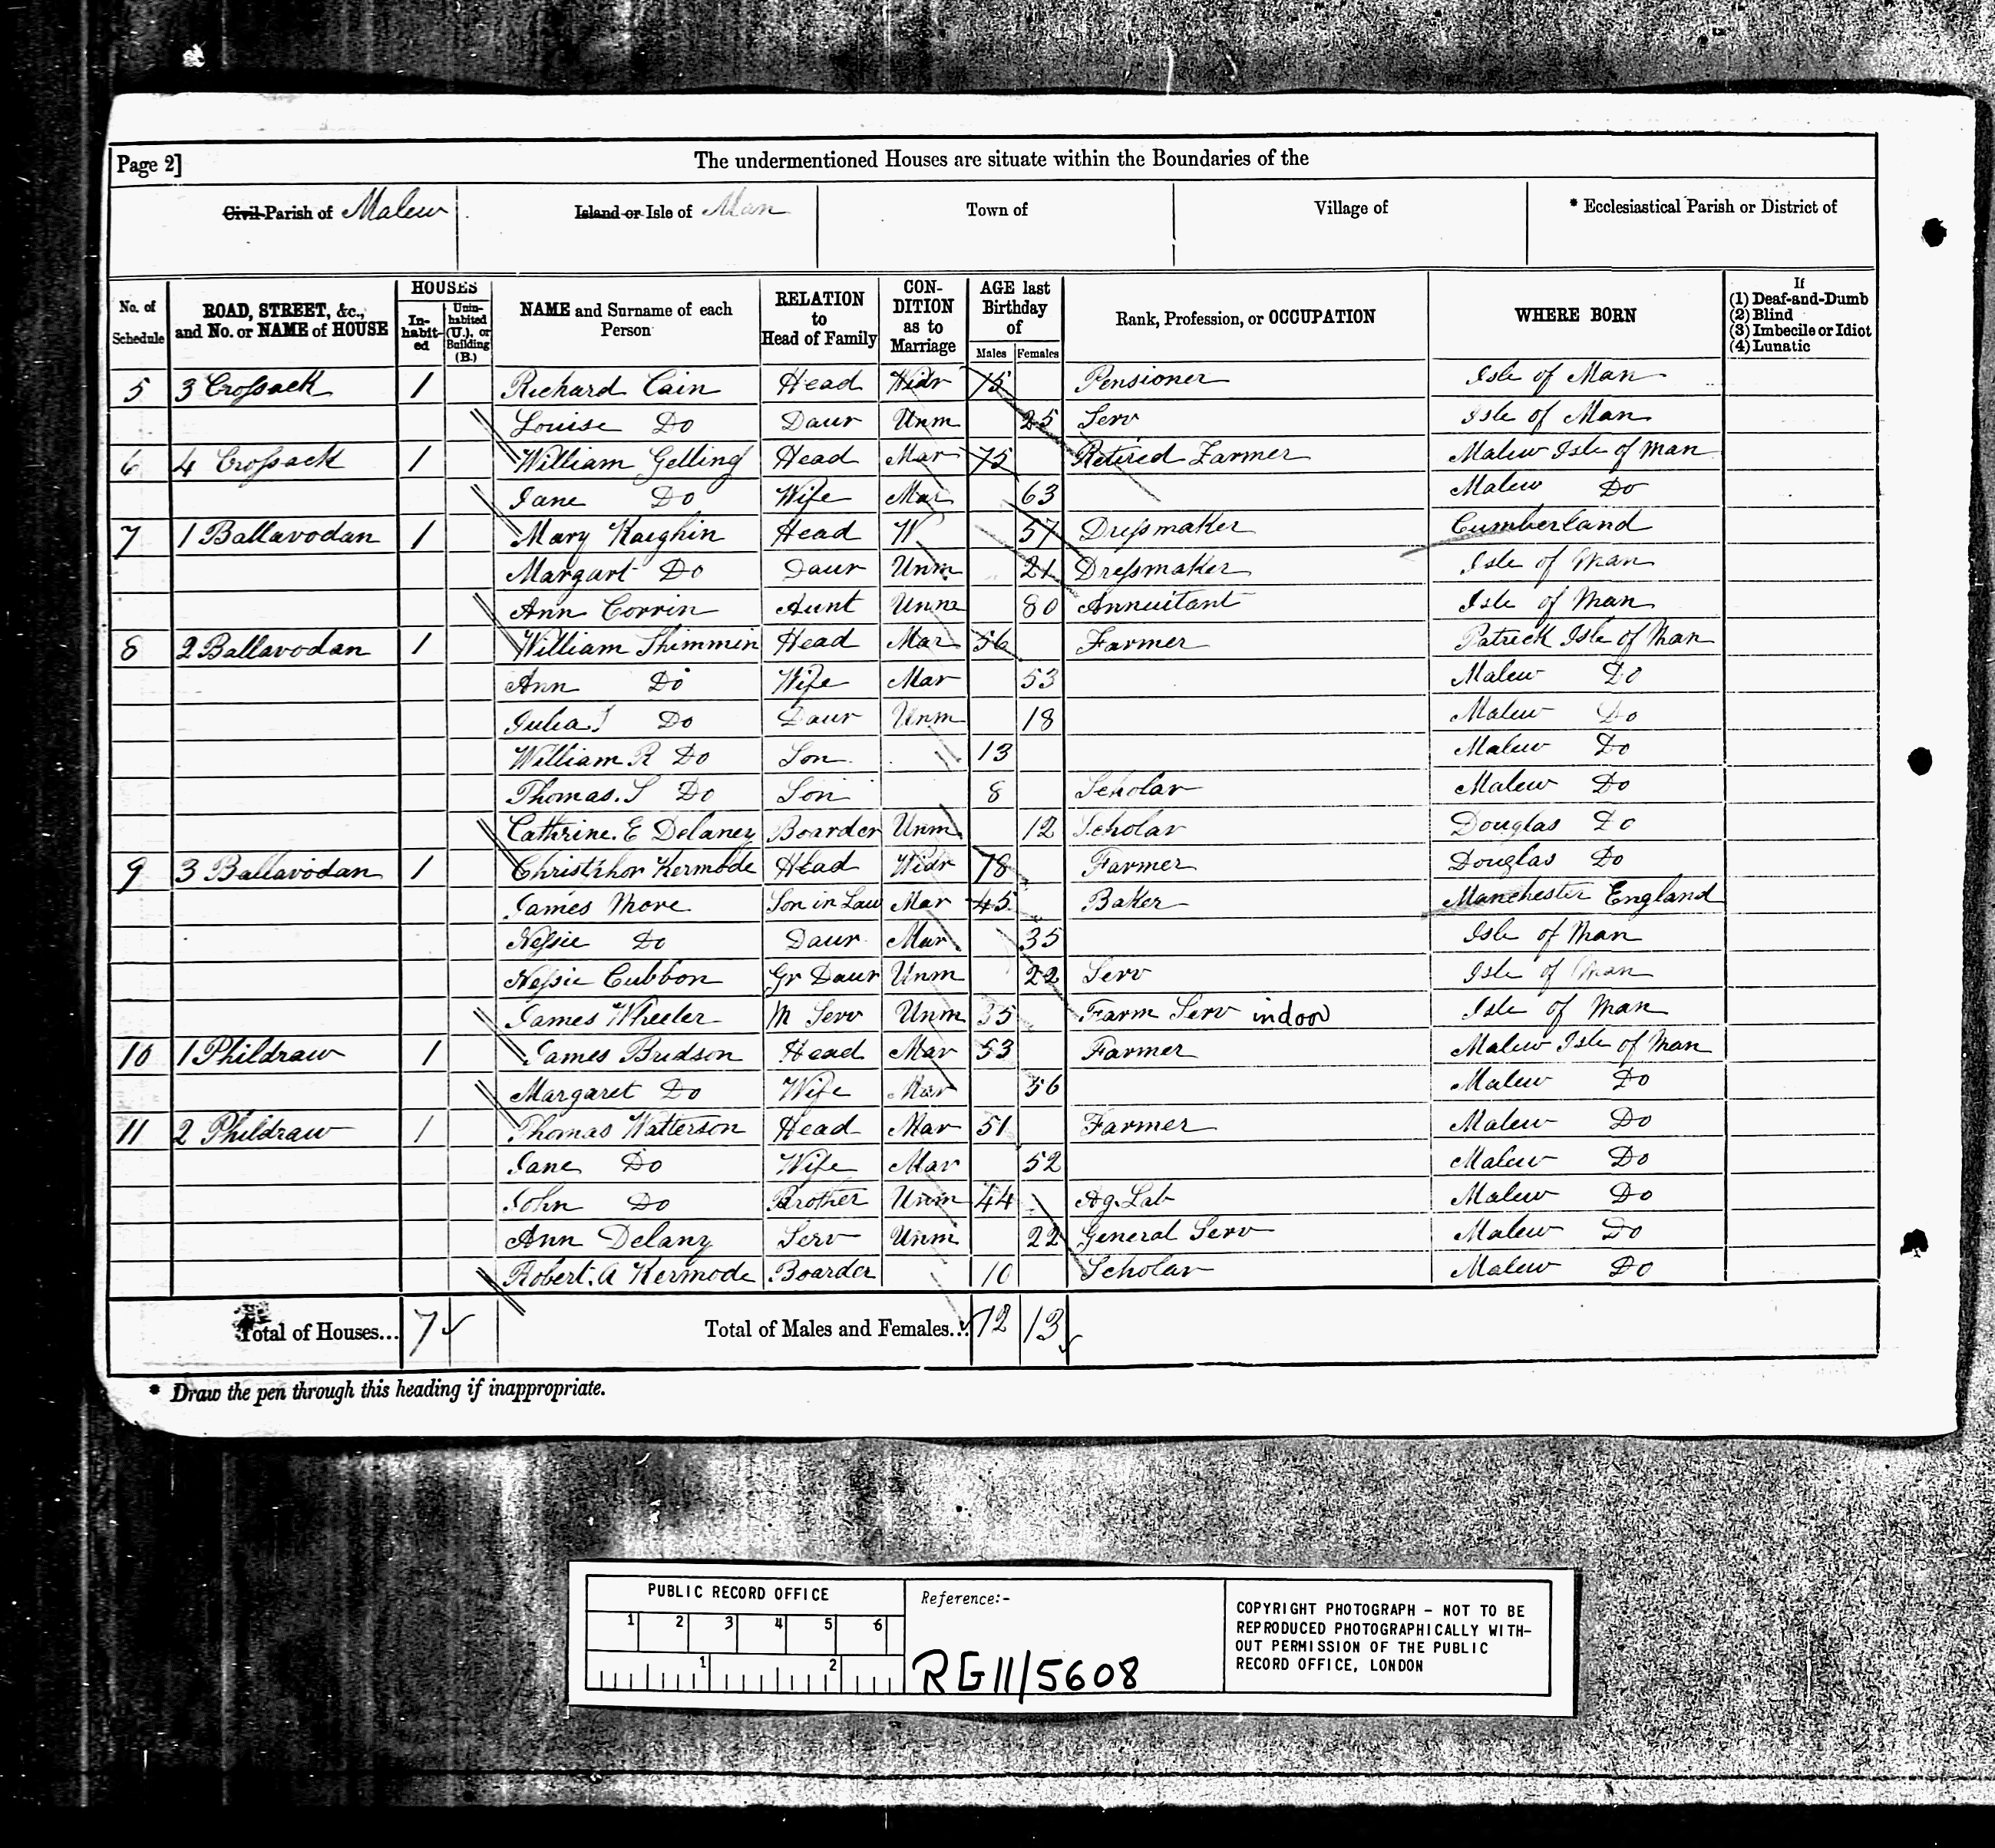 Page 2]
The undermentioned Houses are situate within the Boundaries of the
Civil Parish of Malew
Island or Isle of Man
Town of
Village of
* Ecclesiastical Parish or District of
No. of Schedule
ROAD, STREET, &c., and No. or NAME of HOUSE
HOUSES
In-habit-ed
Unin-habited (U.), or Building (B.)
NAME and Surname of each Person
RELATION to Head of Family
CON-DITION as to Marriage
AGE last Birthday of
Males Females
Rank, Profession, or OCCUPATION
WHERE BORN
If (1) Deaf-and-Dumb (2) Blind (3) Imbecile or Idiot (4) Lunatic
5 3 Crossack 1 Richard Cain Head Widr 75 Pensioner Isle of Man
Louise Do Daur Unm 25 Serv Isle of Man
6 4 Crossack 1 William Gelling Head Mar 75 Retired Farmer Malew Isle of Man
Jane Do Wife Mar 63 Malew Do
7 1 Ballavodan 1 Mary Kaighin Head W 57 Dressmaker Cumberland
Margart Do Daur Unm 21 Dressmaker Isle of Man
Ann Corrin Aunt Unm 80 Annuitant Isle of Man
8 2 Ballavodan 1 William Shimmin Head Mar 56 Farmer Patrick Isle of Man
Ann Do Wife Mar 53 Malew Do
Julia Do Daur Unm 18 Malew Do
William R Do Son 13 Malew Do
Thomas. S Do Son 8 Scholar Malew Do
Cathrine. E Delaney Boarder Unm 12 Scholar Douglas Do
9 3 Ballavodan 1 Kermode Head Widr 78 Farmer Douglas Do
James More Son in Law Mar 45 Baker Manchester England
Nessie Do Daur Mar 35 Isle of Man
Nessie Cubbon Gr Daur Unm 22 Serv Isle of Man
James Wheeler M Serv Unm 35 Farm Serv indoor Isle of Man
10 1 Phildraw 1 James Bridson Head Mar 53 Farmer Malew Isle of Man
Margaret Do Wife Mar 56 Malew Do
11 2 Phildraw 1 Thomas Watterson Head Mar 51 Farmer Malew Do
Jane Do Wife Mar 52 Malew Do
John Do Brother Unm 44 Ag. Lab Malew Do
Ann Delany Serv Unm 22 General Serv Malew Do
Robert. A Kermode Boarder 10 Scholar Malew Do
Total of Houses... 7
Total of Males and Females... 12 13
* Draw the pen through this heading if inappropriate.
PUBLIC RECORD OFFICE
1 2 3 4 5 6
1 2
Reference:-
RG11/5608
COPYRIGHT PHOTOGRAPH - NOT TO BE
REPRODUCED PHOTOGRAPHICALLY WITH-
OUT PERMISSION OF THE PUBLIC
RECORD OFFICE, LONDON